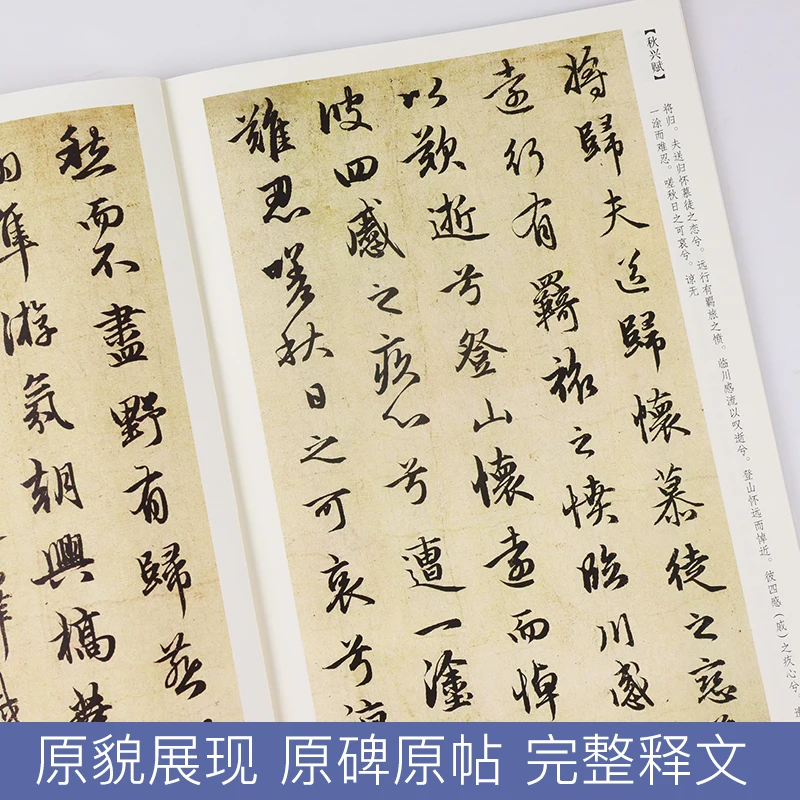 【秋兴赋】
将归。夫送归怀慕徒之恋兮。远行有羁旅之愤。临川感流以叹逝兮。登山怀远而悼近。彼四感(戚)之疚心兮。遭
一涂而难忍。嗟秋日之可哀兮。谅无
將歸夫送歸懷慕徒之戀
遠行有羇旅之憤臨川感
以歎逝兮登山懷遠而悼
彼四慼之疚心兮遭一塗
難忍嗟秋日之可哀兮諒
愁而不盡野有歸燕
隼游氛朝興槁葉
原貌展现 原碑原帖 完整释文